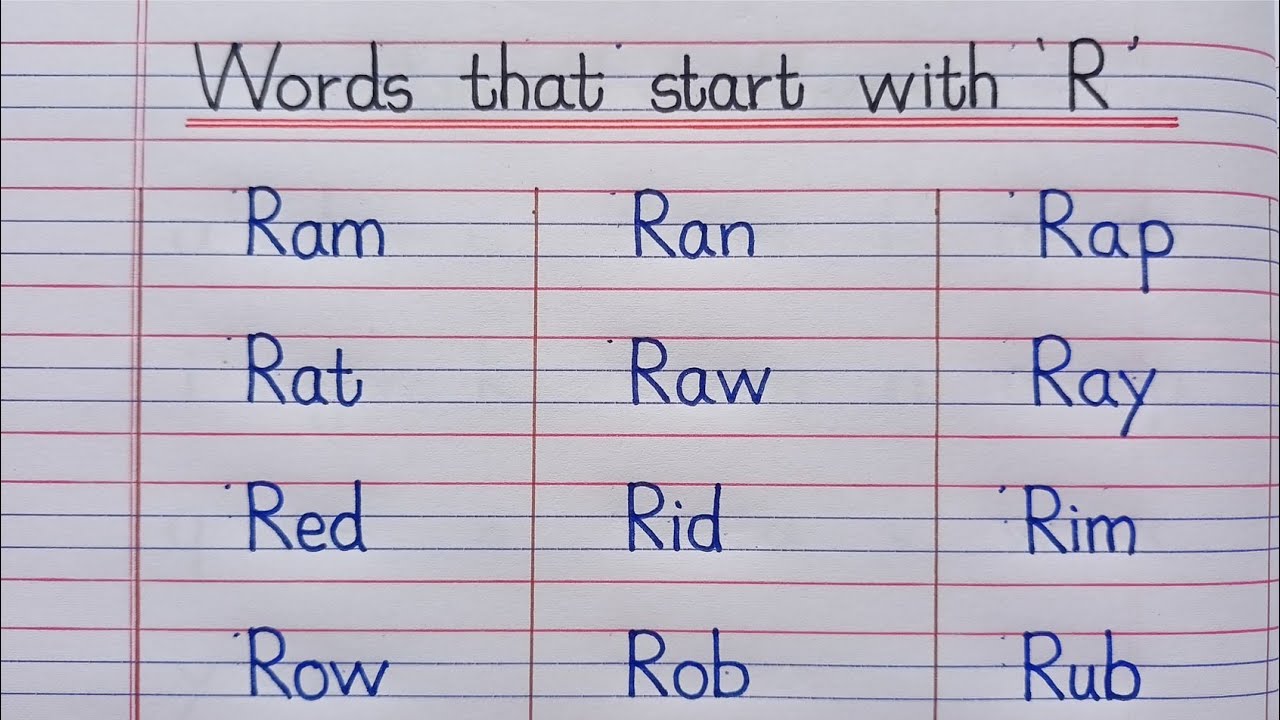 Words that start with 'R'
Ram Ran Rap
Rat Raw Ray
Red Rid Rim
Row Rob Rub